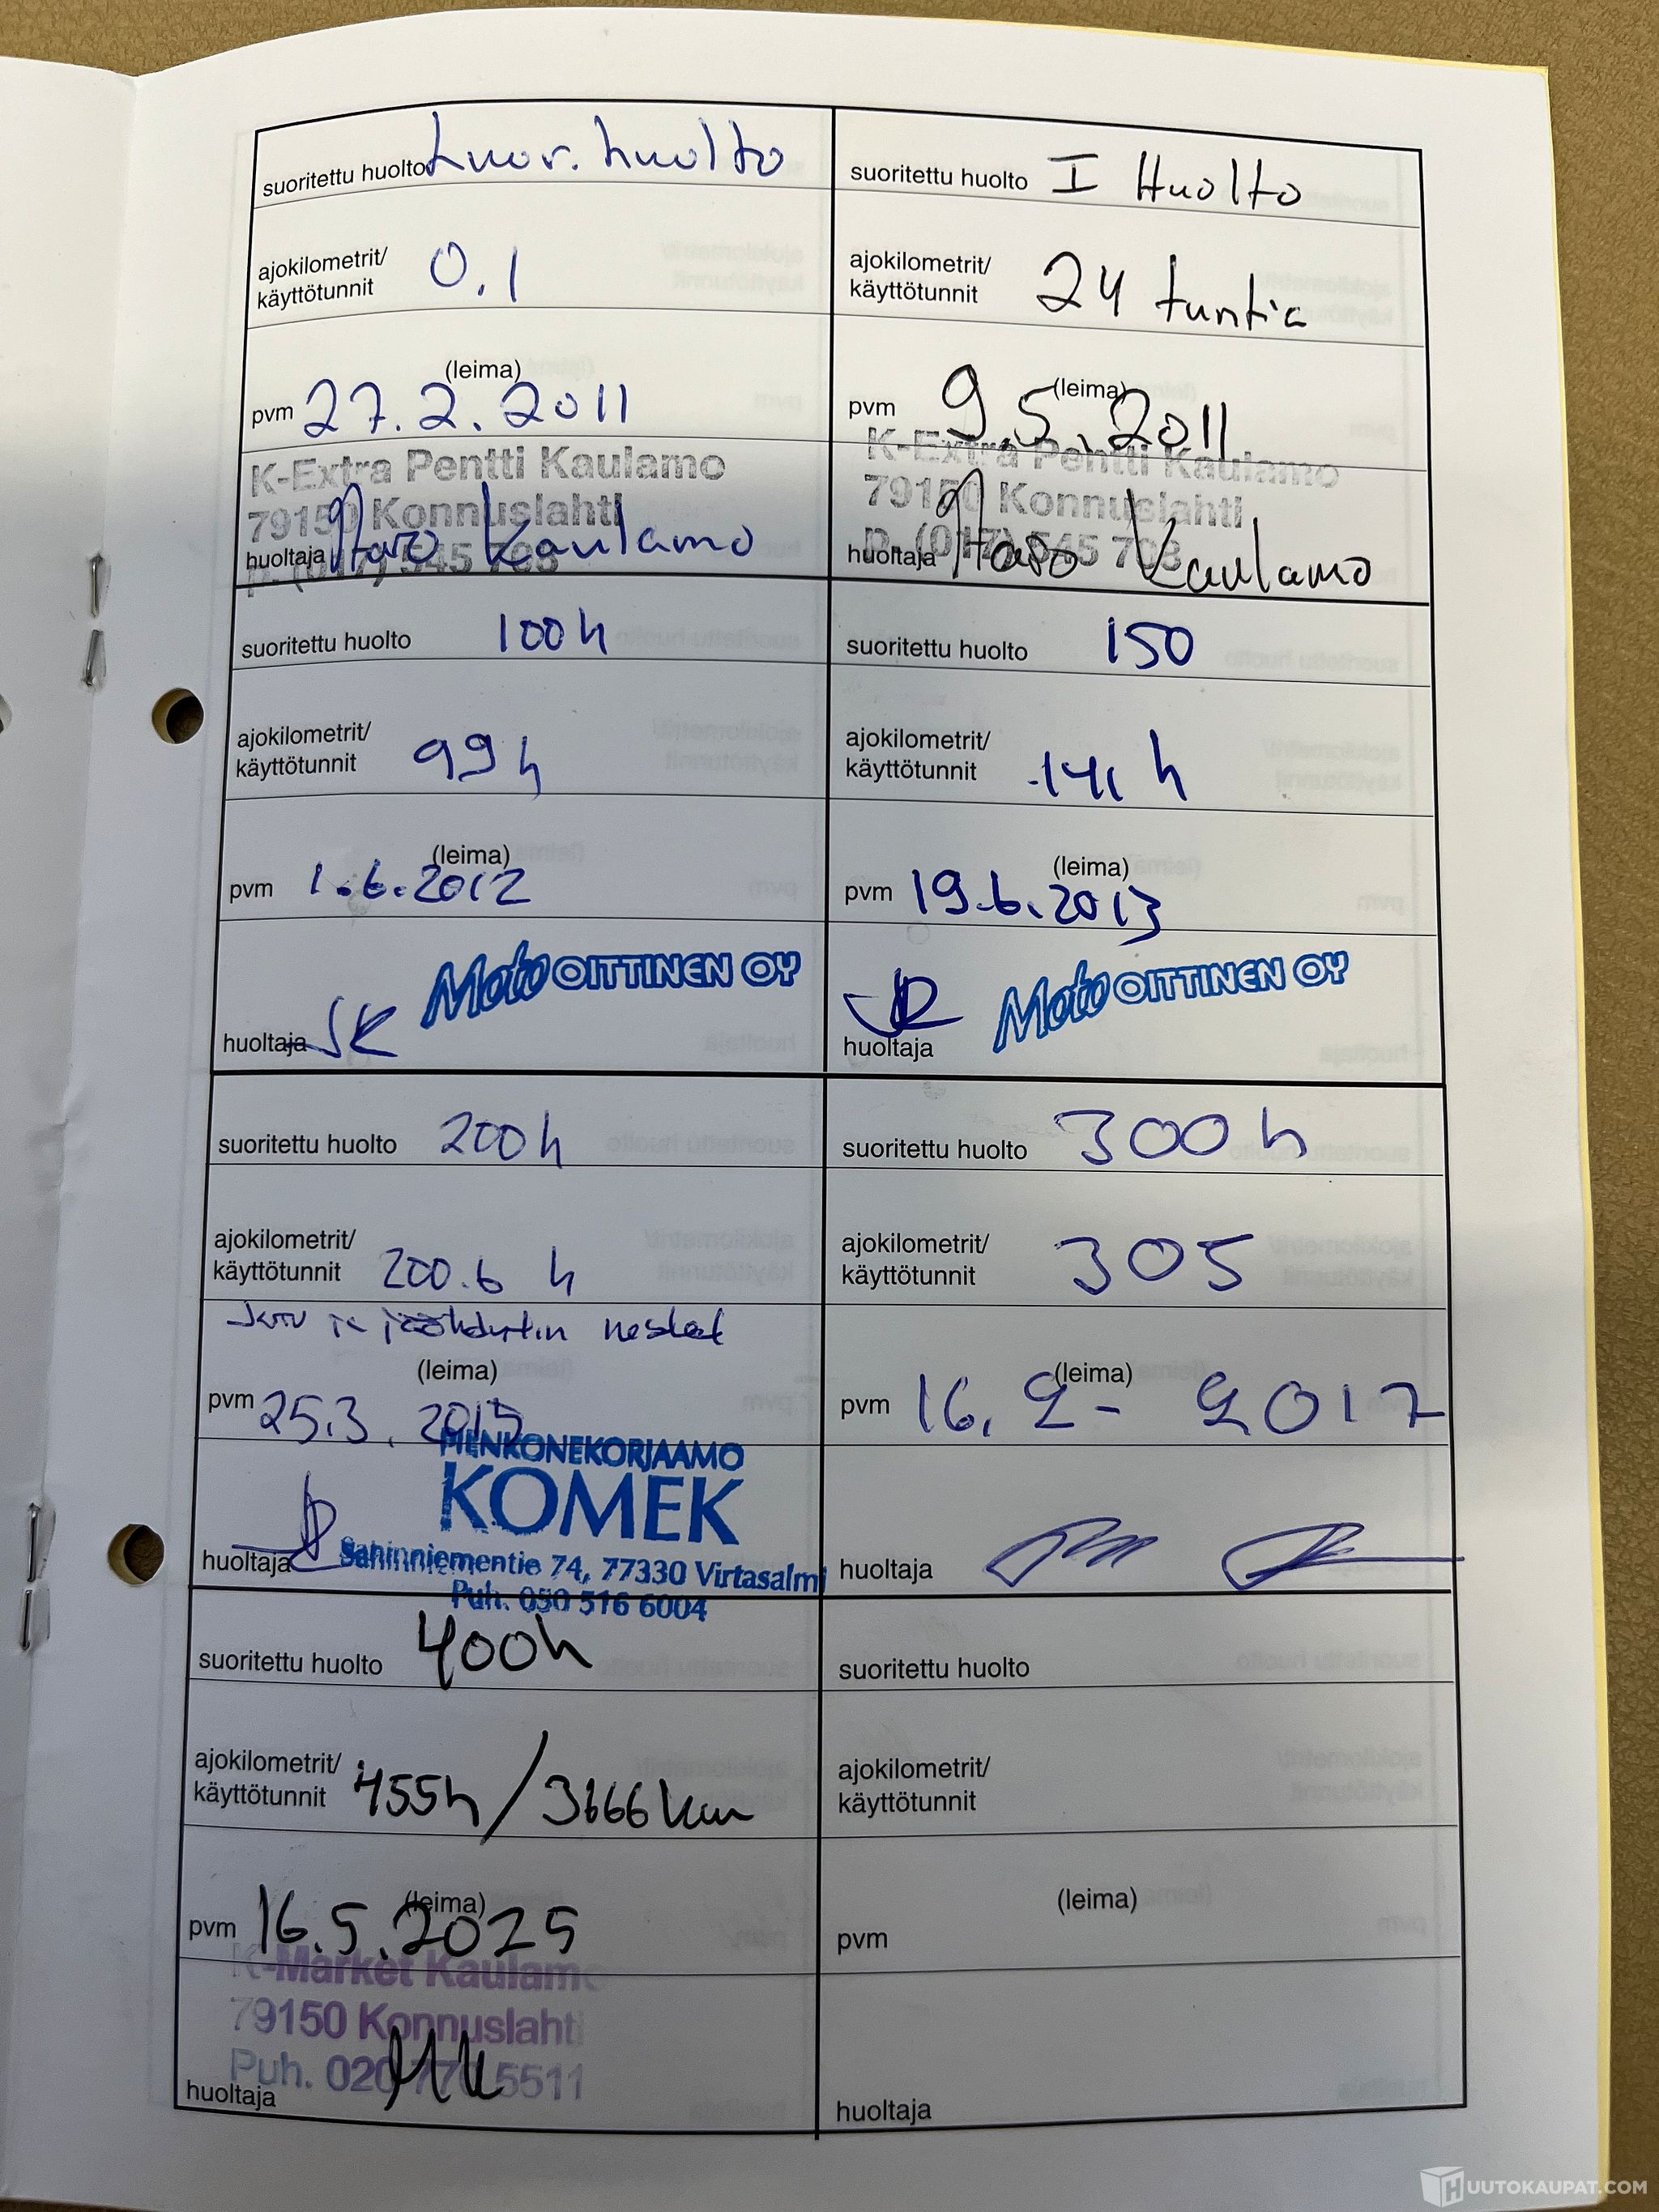 suoritettu huolto Luov. huolto
ajokilometrit/
käyttötunnit 0.1
(leima)
pvm 27.2.2011
K-Extra Pentti Kaulamo
79150 Konnuslahti
p. (017) 545 708
huoltaja Kaulamo
suoritettu huolto I Huolto
ajokilometrit/
käyttötunnit 24 tuntia
(leima)
pvm 9.5.2011
K-Extra Pentti Kaulamo
79150 Konnuslahti
p. (017) 545 708
huoltaja Kaulamo
suoritettu huolto 100h
ajokilometrit/
käyttötunnit 99h
(leima)
pvm 1.6.2012
Moto OITTINEN OY
huoltaja
suoritettu huolto 150
ajokilometrit/
käyttötunnit 141 h
(leima)
pvm 19.6.2013
Moto OITTINEN OY
huoltaja
suoritettu huolto 200h
ajokilometrit/
käyttötunnit 200.6 h
ja jäähdytin nesteet
(leima)
pvm 25.3.2015
PIENKONEKORJAAMO
KOMEK
Sahinniementie 74, 77330 Virtasalmi
Puh. 050 516 6004
huoltaja
suoritettu huolto 300h
ajokilometrit/
käyttötunnit 305
(leima)
pvm 16.2-2017
huoltaja
suoritettu huolto 400h
ajokilometrit/
käyttötunnit 455h/3666km
(leima)
pvm 16.5.2025
K-Market Kaulamo
79150 Konnuslahti
Puh. 020 770 5511
huoltaja
suoritettu huolto
ajokilometrit/
käyttötunnit
(leima)
pvm
huoltaja
HUUTOKAUPAT.COM